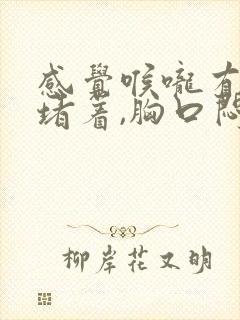 感覺喉嚨有
堵着,胸口悶
柳岸花又明